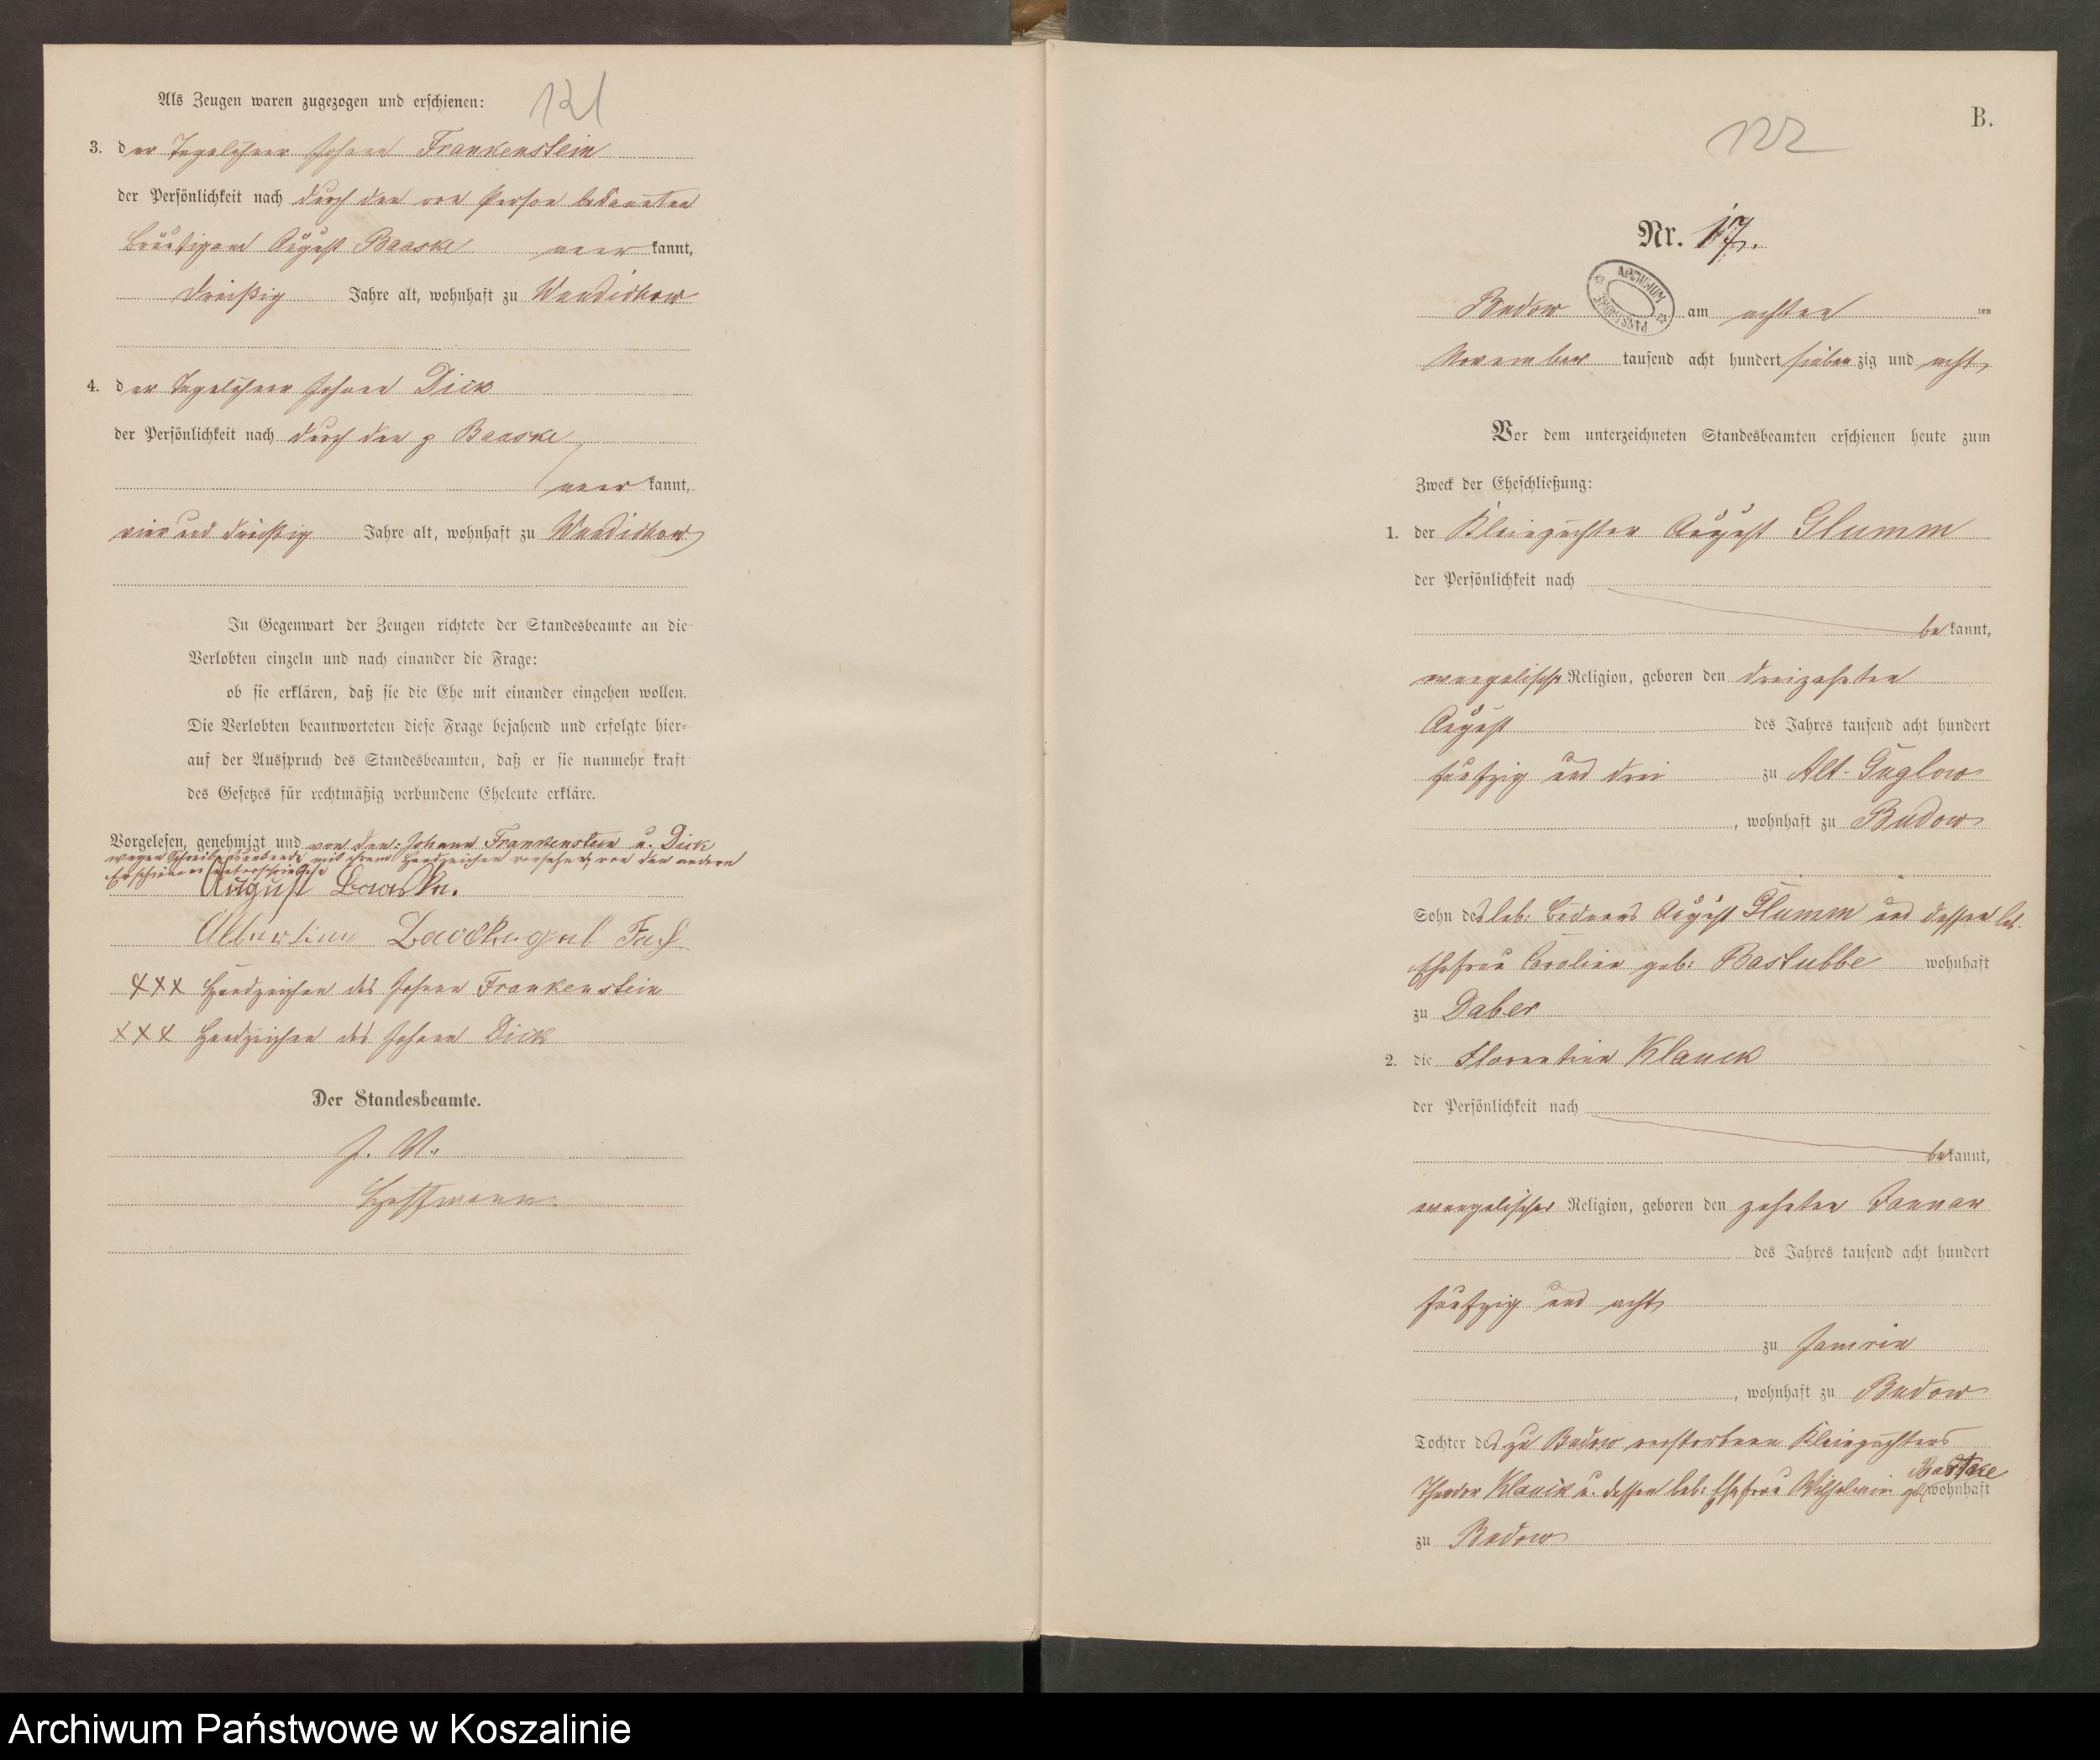 Als Zeugen waren zugezogen und erschienen:
121
3. der Tagelöhner Johann Frankenstein
der Persönlichkeit nach durch den von Person bekannten
Bräutigam August Baaske aner kannt,
dreißig Jahre alt, wohnhaft zu Wundichow
4. der Tagelöhner Johann Dick
der Persönlichkeit nach durch den p Baaske
aner kannt,
vier und dreißig Jahre alt, wohnhaft zu Wundichow
In Gegenwart der Zeugen richtete der Standesbeamte an die
Verlobten einzeln und nach einander die Frage:
ob sie erklären, daß sie die Ehe mit einander eingehen wollen.
Die Verlobten beantworteten diese Frage bejahend und erfolgte hier-
auf der Ausspruch des Standesbeamten, daß er sie nunmehr kraft
des Gesetzes für rechtmäßig verbundene Eheleute erkläre.
Vorgelesen, genehmigt und von den: Johann Frankenstein u. Dick
wegen Schreibensunkunde mit ihrem Handzeichen versehen, von den andern
Erschienenen unterschrieben
August Baaske.
Albertine Baaske geb
XXX Handzeichen des Johann Frankenstein
XXX Handzeichen des Johann Dick
Der Standesbeamte.
J. V.
Hoffmann
B.
122
Nr. 17.
ARCHIWUM PAŃSTWOWE
Budow am achten ten
November tausend acht hundert sieben zig und acht
Vor dem unterzeichneten Standesbeamten erschienen heute zum
Zweck der Eheschließung:
1. der Kleinpächter August Glumm
der Persönlichkeit nach
be kannt,
evangelischer Religion, geboren den dreizehnten
August des Jahres tausend acht hundert
fünfzig und drei zu Alt-Guglow
, wohnhaft zu Budow
Sohn des leb: Büdners August Glumm und dessen leb.
Ehefrau Caroline geb: Bastubbe wohnhaft
zu Daber
2. die Florentine Klauck
der Persönlichkeit nach
be kannt,
evangelischer Religion, geboren den zehnten Januar
des Jahres tausend acht hundert
fünfzig und acht
zu Jamrin
, wohnhaft zu Budow
Tochter des zu Budow verstorbenen Kleinpächters
Theodor Klauck u. dessen leb: Ehefrau Wilhelmine geb. wohnhaft
zu Budow
Archiwum Państwowe w Koszalinie